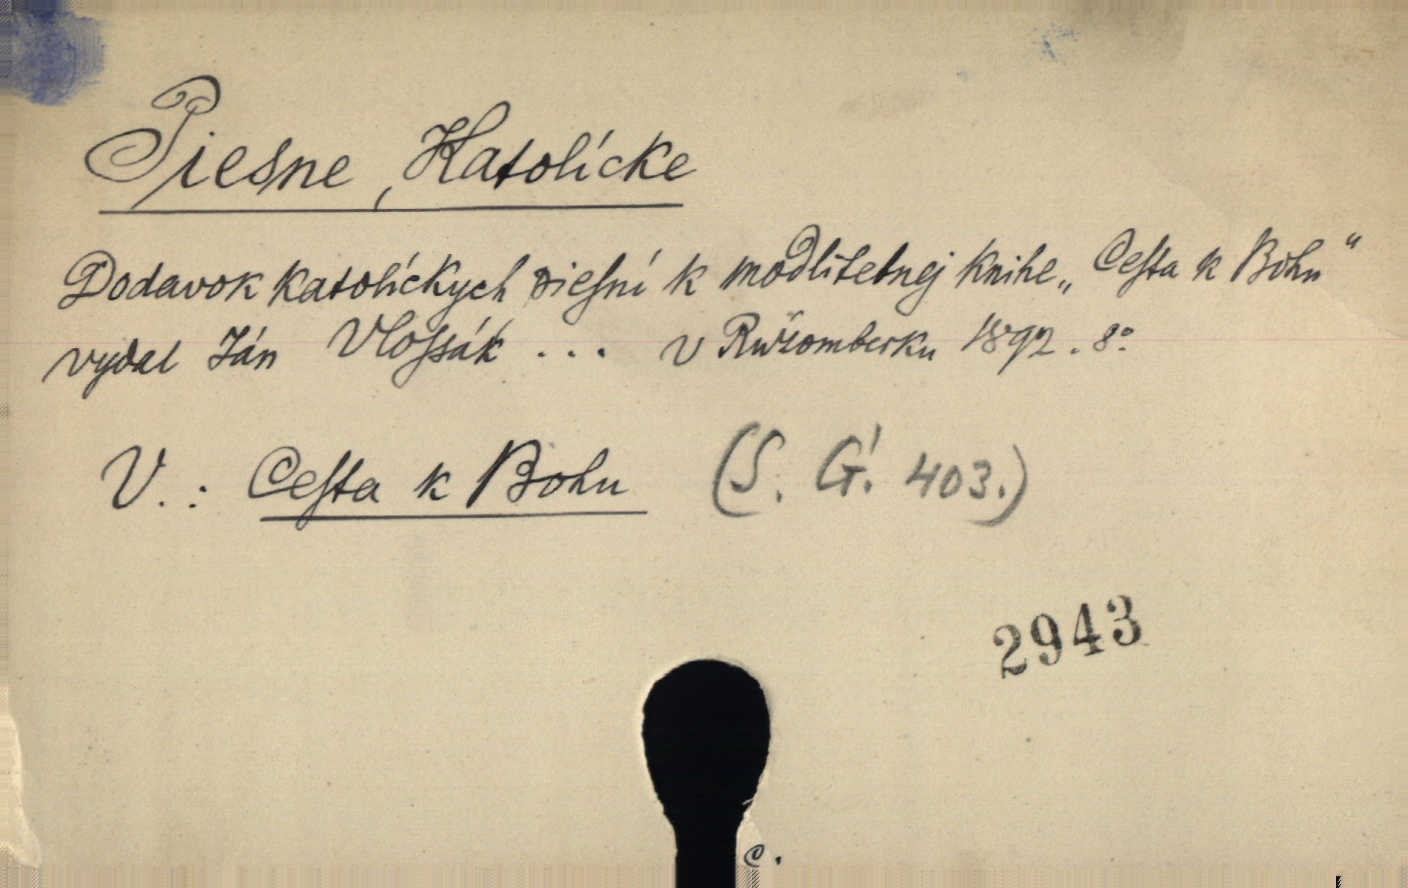 Piesne, Katolícke
Dodavok katolíckych piesní k modlitebnej knihe „Cesta k Bohu“
vydal Ján Vlossák ... v Ružomberku 1892. 8°.
V.: Cesta k Bohu (S. G. 403.)
2943
c.